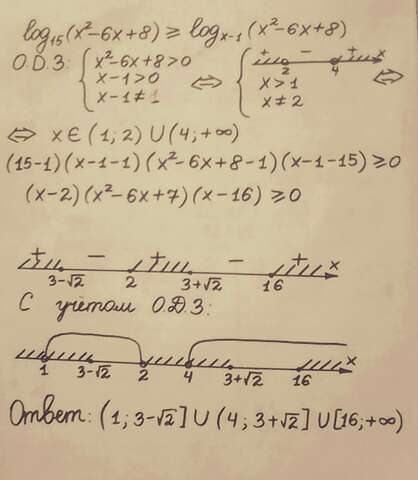 log₁₅(x²-6x+8) ≥ logₓ₋₁(x²-6x+8)
О.Д.З: { x²-6x+8>0 ⇔ { + 2 - 4 + x ⇔
x-1>0 x>1
x-1≠1 x≠2
⇔ x∈(1;2)∪(4;+∞)
(15-1)(x-1-1)(x²-6x+8-1)(x-1-15)≥0
(x-2)(x²-6x+7)(x-16)≥0
+ - + - + x
3-√2 2 3+√2 16
С учётом О.Д.З:
x
1 3-√2 2 4 3+√2 16
Ответ: (1; 3-√2]∪(4; 3+√2]∪[16;+∞)